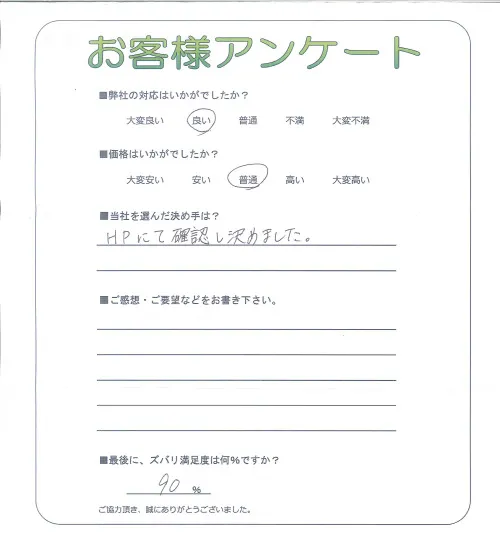 お客様アンケート
■弊社の対応はいかがでしたか？
大変良い 良い 普通 不満 大変不満
■価格はいかがでしたか？
大変安い 安い 普通 高い 大変高い
■当社を選んだ決め手は？
HPにて確認し決めました。
■ご感想・ご要望などをお書き下さい。
■最後に、ズバリ満足度は何%ですか？
90 %
ご協力頂き、誠にありがとうございました。